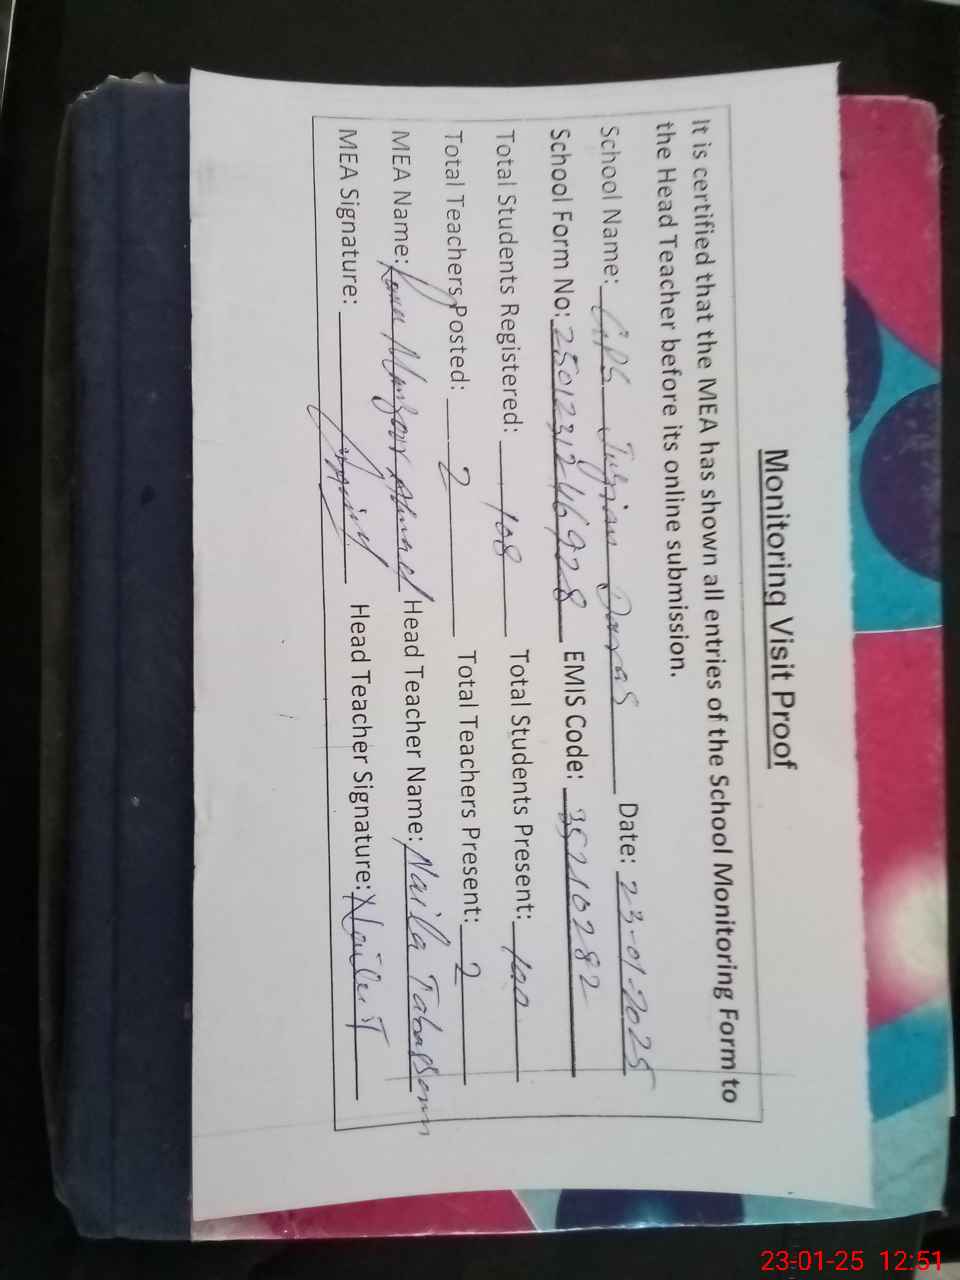 Monitoring Visit Proof
It is certified that the MEA has shown all entries of the School Monitoring Form to
the Head Teacher before its online submission.
School Name: GPS Date: 23-01-2025
School Form No: 2501231246928 EMIS Code: 35210282
Total Students Registered: 108 Total Students Present: 100
Total Teachers Posted: 2 Total Teachers Present: 2
MEA Name: Rana Manzoor Ahmad Head Teacher Name: Naila Tabassam
MEA Signature: Head Teacher Signature: Naila T
23-01-25 12:51